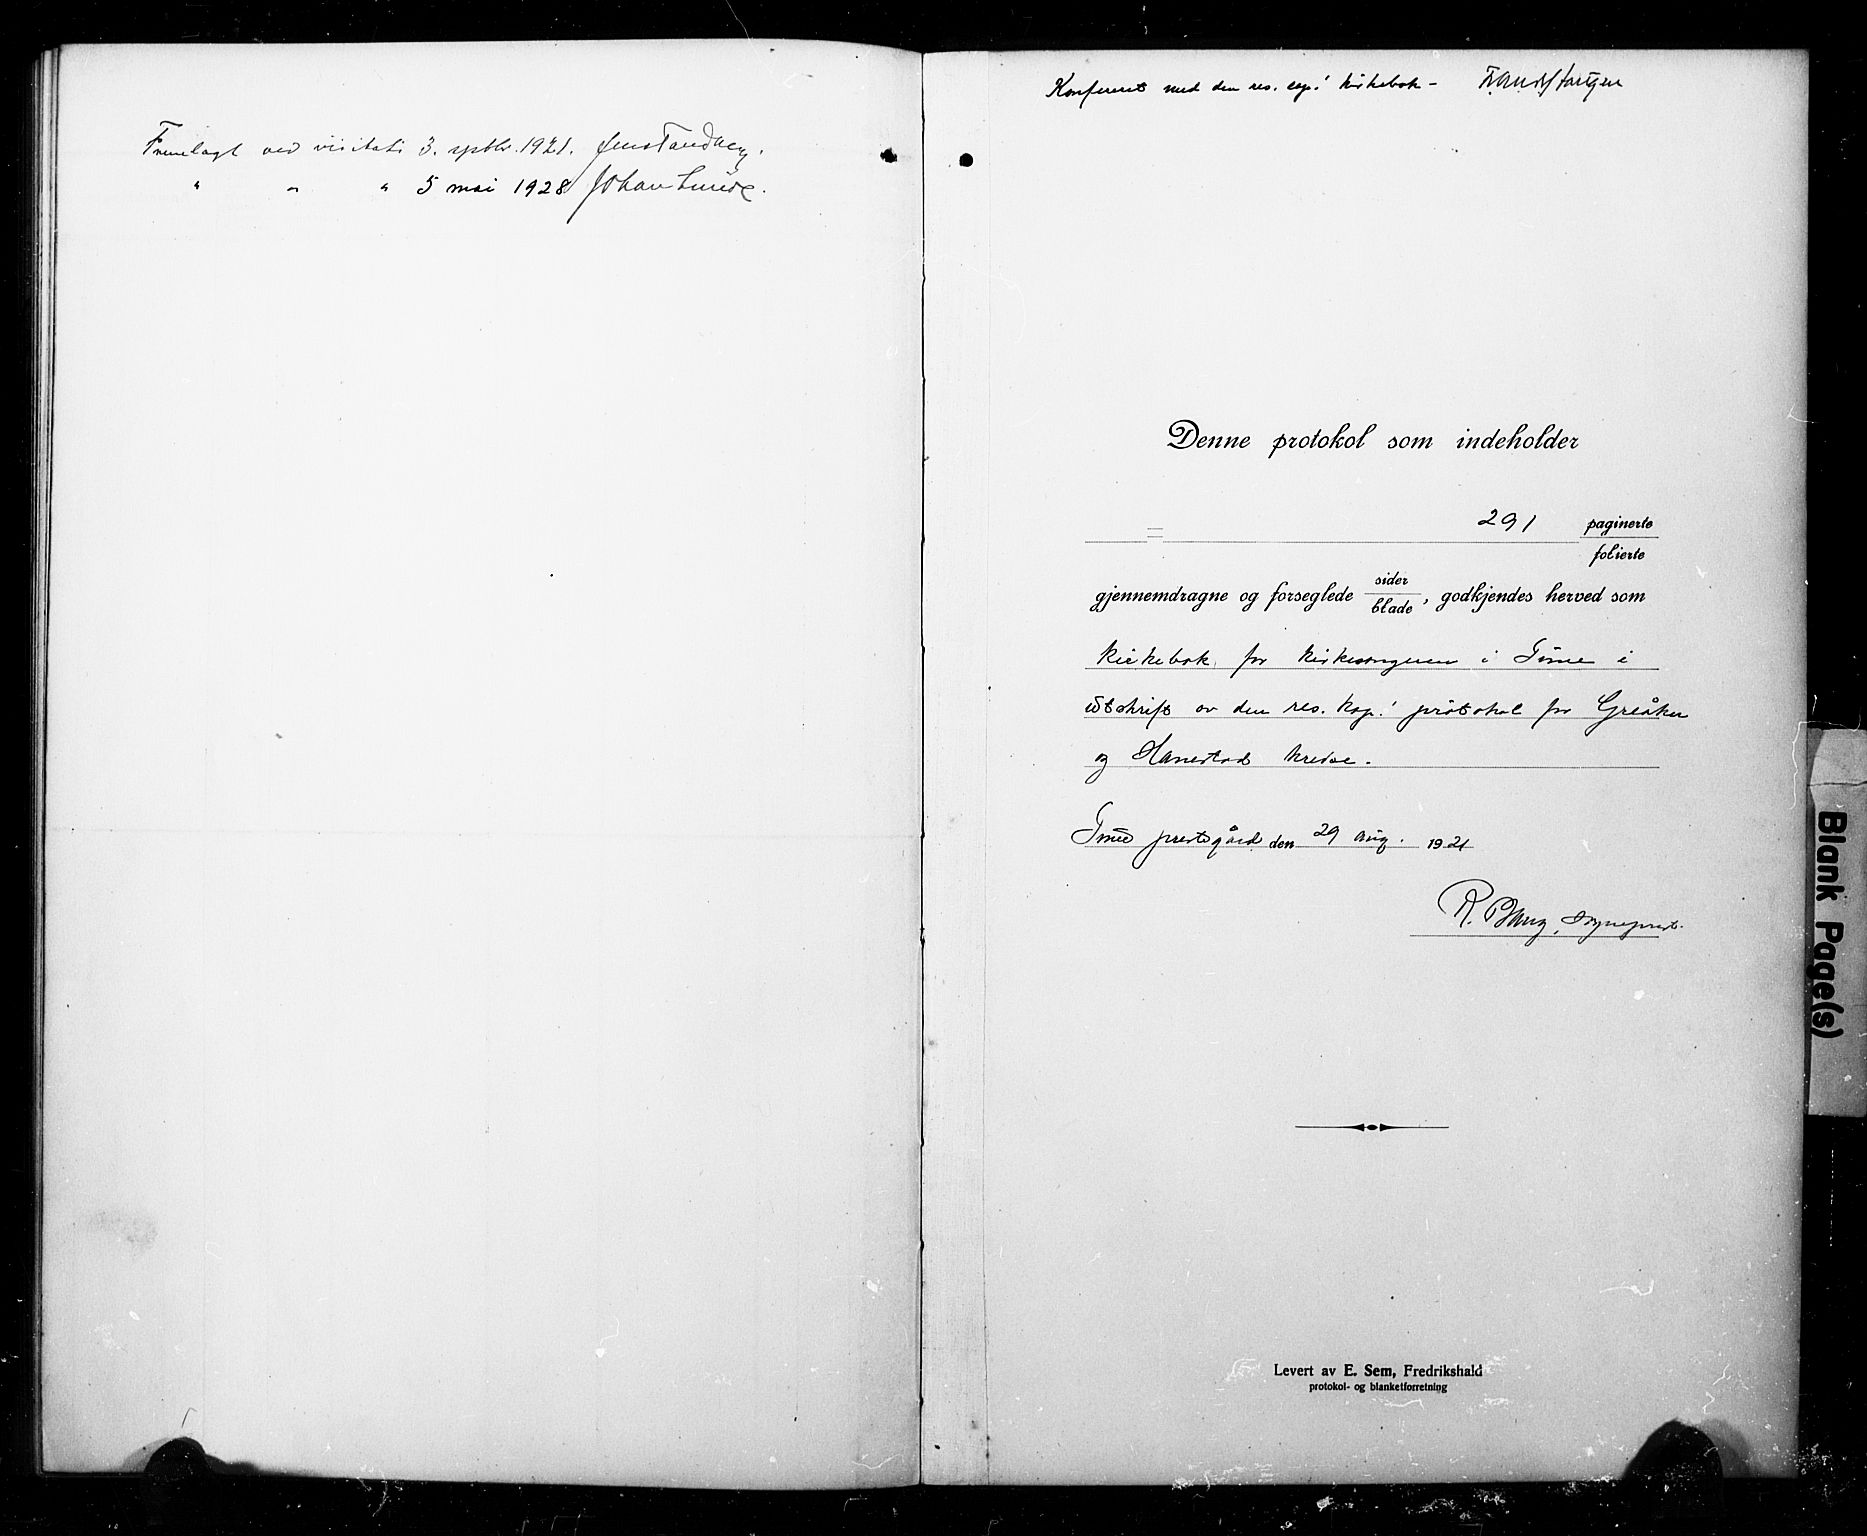 Fremlagt ved visitats 3. septbr. 1921. Jens Tandberg.
" " " 5 mai 1928 Johan Lunde.
Konferert med den res. cap.' kirkebok –
Denne protokol som indeholder
= 291 paginerte
folierte
gjennemdragne og forseglede sider
blade, godkjendes herved som
kirkebok for kirkesangeren i Tune i
utskrift av den res. kap.' protokol for Greåker
og Hanestad kredse.
Tune prestegård den 29 aug. 1921
R. Bang, sogneprest.
Levert av E. Sem, Fredrikshald
protokol- og blanketforretning
Blank Page(s)